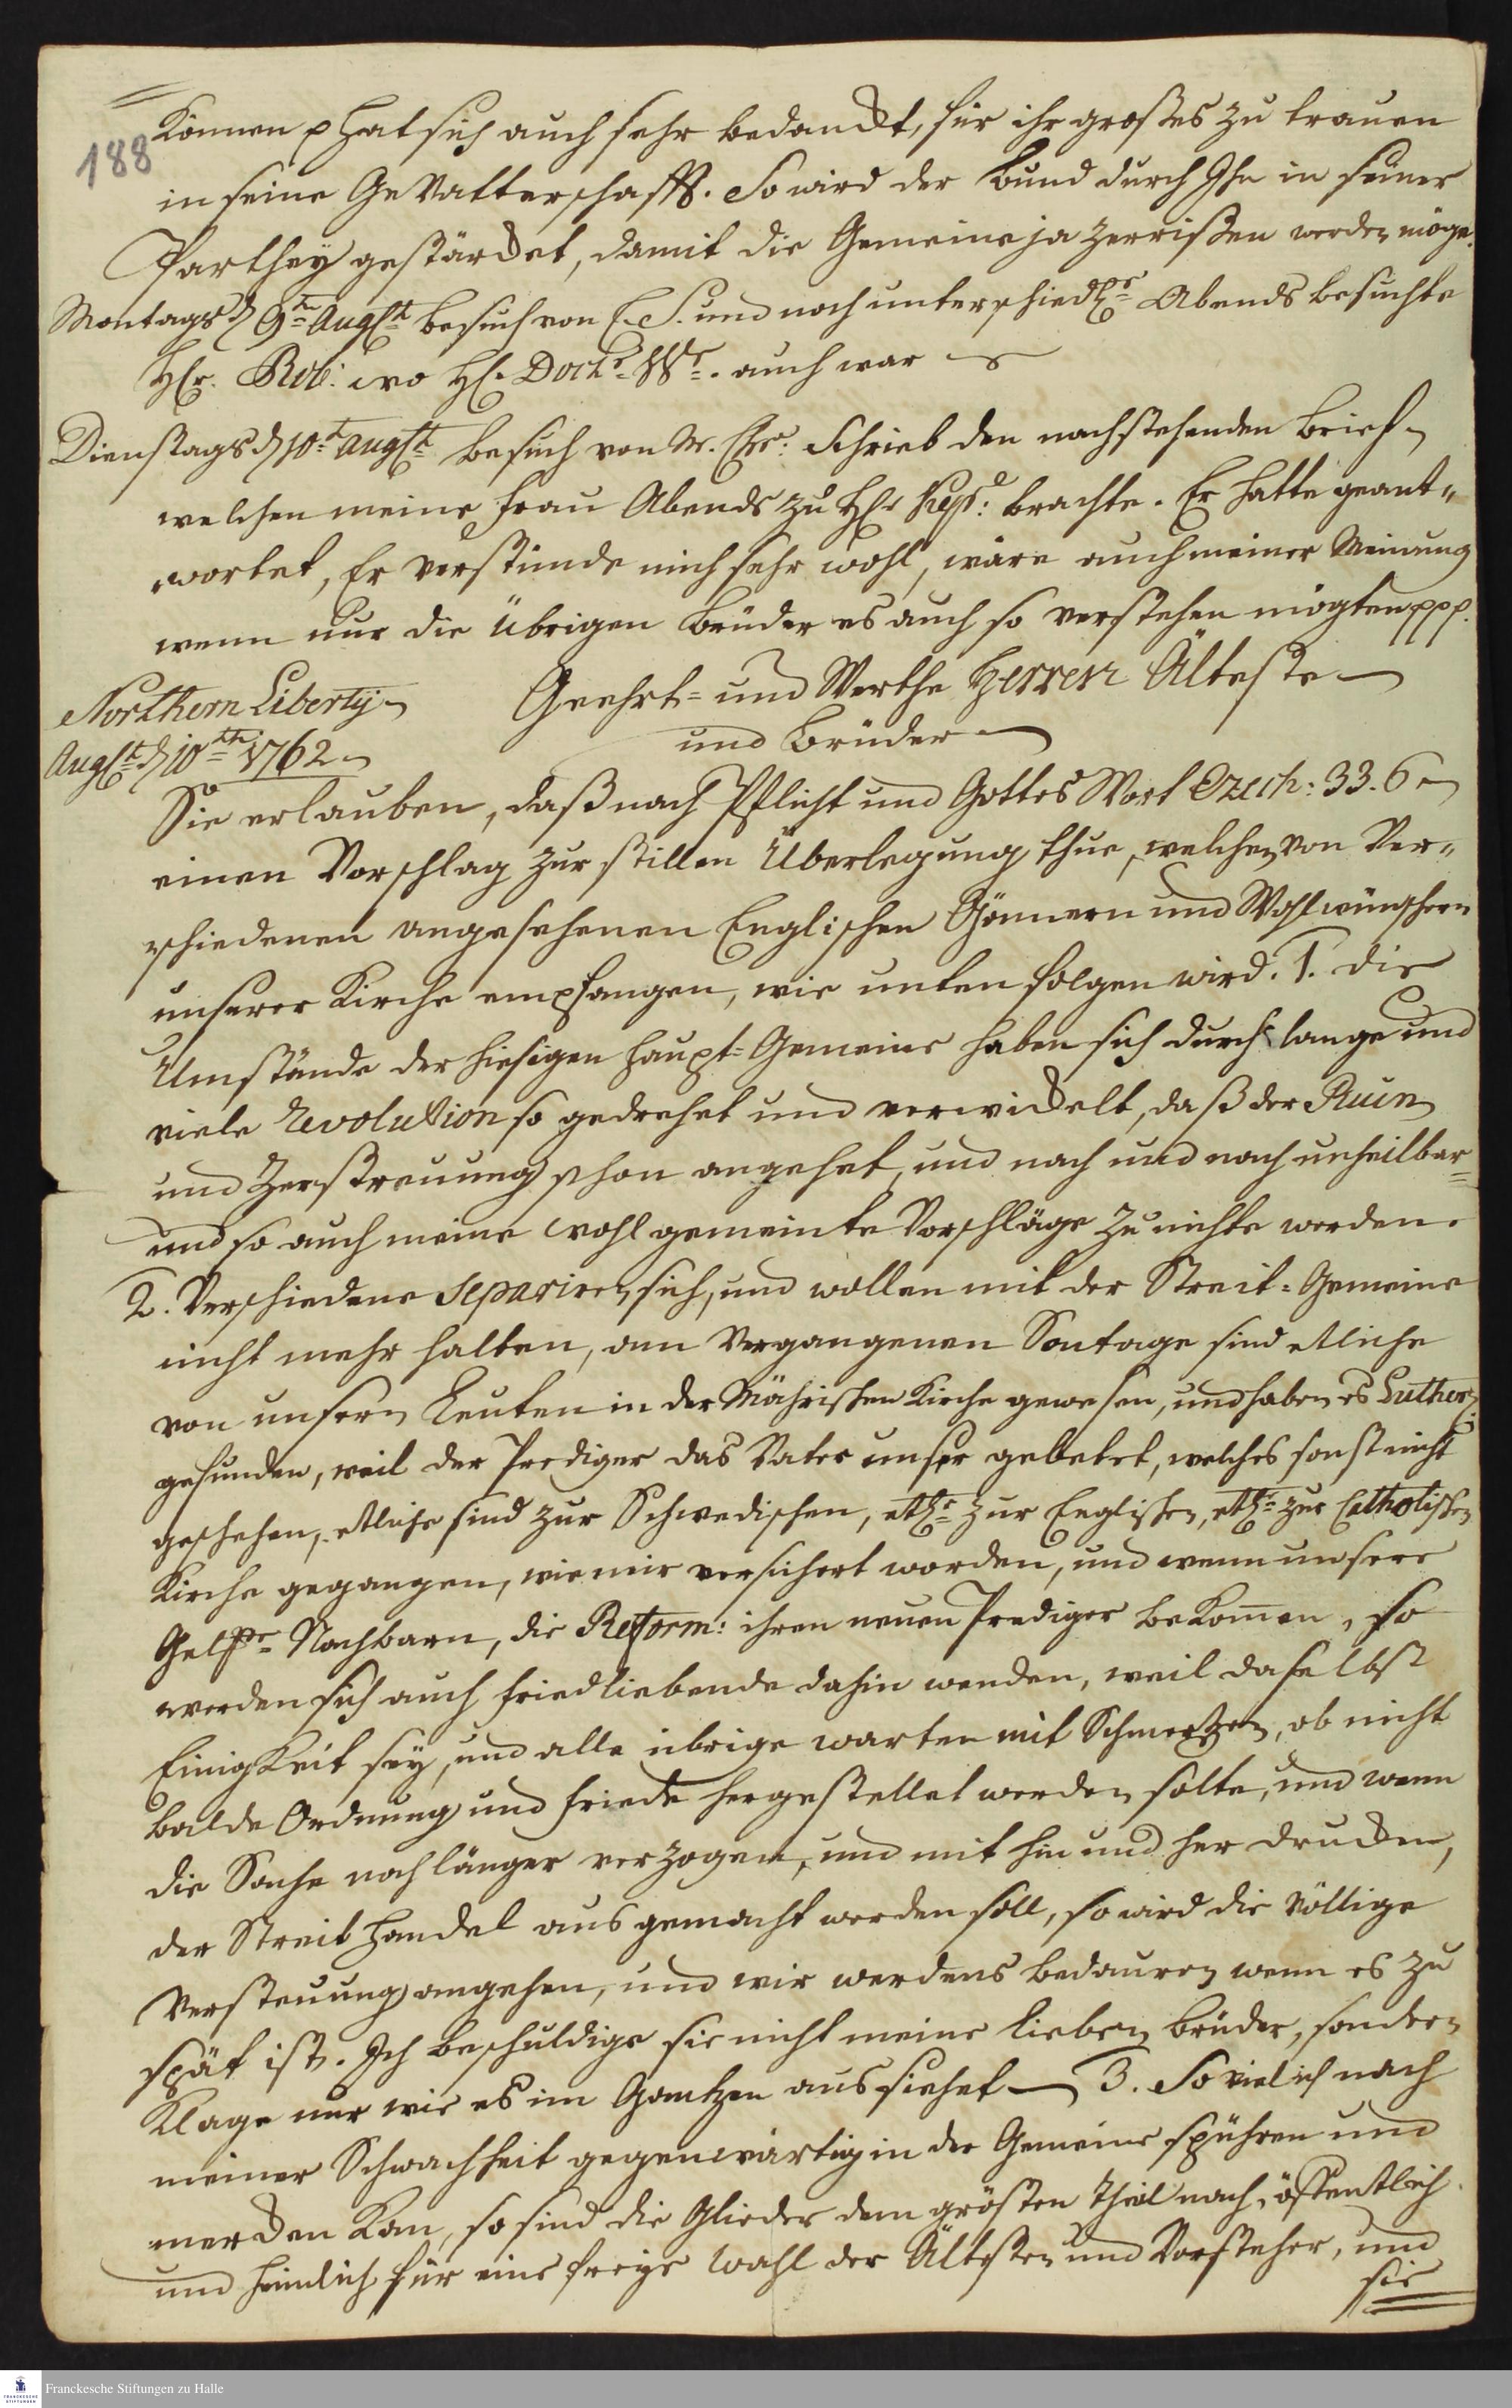 188
Können p hat sich auch sehr bedanckt, für ihr großes zu trauen
in seine GeVatterschafft. So wird der Bund durch Ihn in seiner
Parthey gestärcket, damit die Gemeine ja zerrißen werden möge.
Montags d 9th Augst besuch von E. S. und noch unterschiedle Abends besuchte
HEr. Rob: wo HE. Doctr Wr. auch war
Dienstags d 10t Augst besuch von M. Schrieb den nachstehenden Brief
welchen meine Frau Abends zu HEr Kepp: brachte. Er hatte geant„
wortet, Er verstünde mich sehr wohl, wäre auch meiner Meinung
wenn nur die Übrigen Brüder es auch so verstehen mögten ppp.
Northern Liberty
Augst d 10th 1762
Geehrt= und Werthe Herren Älteste
und Brüder
Sie erlauben, daß nach Pflicht und Gottes Wort Ezech: 33. 6
einen Vorschlag zur stillen Überlegung thue, welchen von Ver„
schiedenen angesehenen Englischen Gönnern und Wohlwünschern
unserer Kirche empfangen, wie unten folgen wird. 1. die
Umstände der hiesigen Haupt=Gemeine haben sich durch lange und
viele Revolution so gedrehet und verwickelt, daß der Ruin
und Zerstreuung schon angehet, und nach und nach unheilbar=
und so auch meine wohl gemeinte Vorschläge zu nichte werden.
2. Verschiedene separiren sich, und wollen mit der Streit=Gemeine
nicht mehr halten, am Vergangenen Sontage sind etliche
von unsern Leuten in der Mährischen Kirche gewesen, und haben es Luther:
gefunden, weil der Prediger das Vater unser gebetet, welches sonst nicht
geschehen, etliche sind zur Schwedischen, etle zur Englischen, etle zur Catholischen
Kirche gegangen, wie mir versichert worden, und wenn unsere
Nachbarn, die Reform: ihren neuen Prediger beKommen, so
werden sich auch friedliebende dahin wenden, weil daselbst
Einigkeit sey, und alle übrige warten mit Schmertzen, ob nicht
balde Ordnung und Friede hergestellet werden solte, und wenn
die Sache noch länger verzogen, und mit hin und her drucken,
der Streit Handel ausgemacht werden soll, so wird die völlige
Verstreuung angehen, und wir werdens bedauren wenn es zu
spät ist. Ich beschuldige sie nicht meine lieben Brüder, sondern
Klage nur wie es im Gantzen aussiehet — 3. So viel ich nach
meiner Schwachheit gegenwärtig in der Gemeine spühren und
mercken Kan, so sind die Glieder dem grösten Theil nach, öffentlich
und heimlich für eine freye Wahl der Ältesten und Vorsteher, und
sie
Franckesche Stiftungen zu Halle